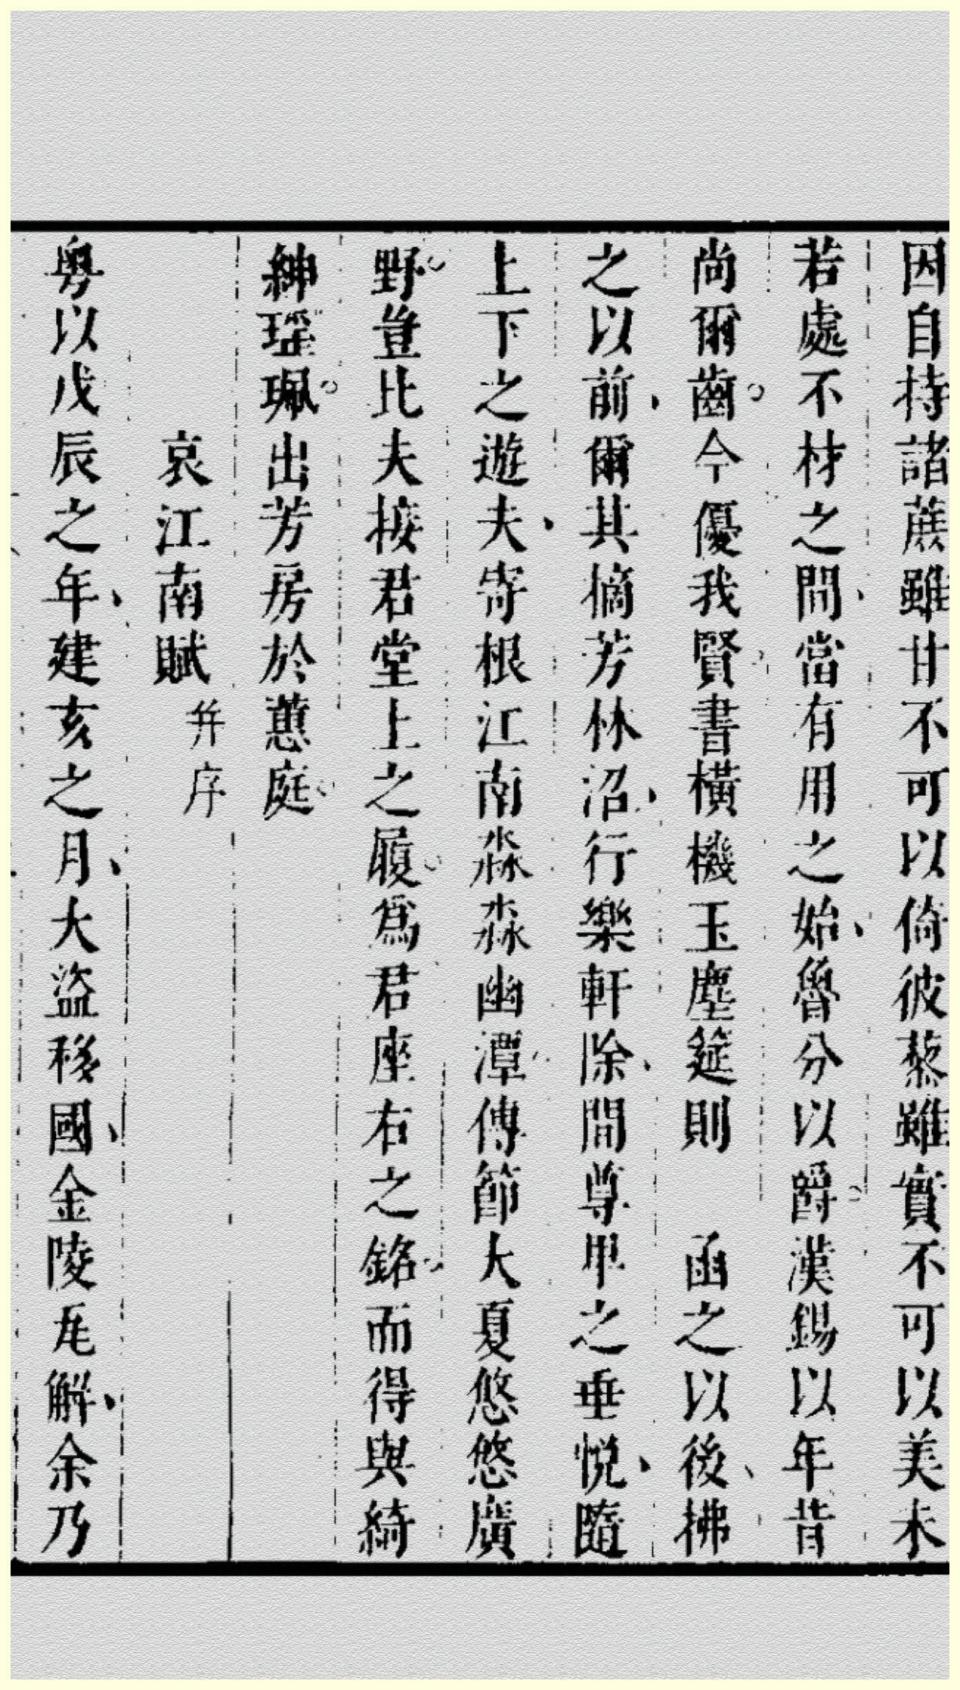 因自持諸蔗雖甘不可以倚彼藜雖實不可以美未
若處不材之間當有用之始魯分以爵漢錫以年昔
尚爾齒今優我賢書橫機玉塵筵則 函之以後拂
之以前爾其摘芳林沼行樂軒除間尊卑之垂悅隨
上下之遊夫寄根江南淼淼幽潭傳節大夏悠悠廣
野豈比夫接君堂上之履爲君座右之銘而得與綺
紳瑶珮出芳房於蕙庭
哀江南賦 并序
粤以戊辰之年建亥之月大盜移國金陵瓦解余乃